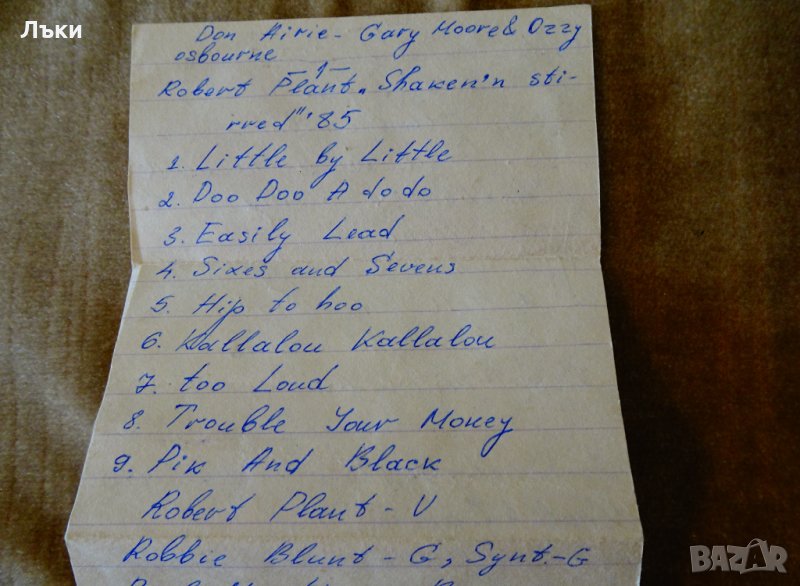 Лъки
Don Airie - Gary Moore & Ozzy
osbourne
- 1 -
Robert Plant „Shaken'n sti-
rred" '85
1. Little by Little
2. Doo Doo A do do
3. Easily Lead
4. Sixes and Sevens
5. Hip to hoo
6. Kallalou Kallalou
7. too Loud
8. Trouble Your Money
9. Pik And Black
Robert Plant - V
Robbie Blunt - G, Synt.-G
BAZAR